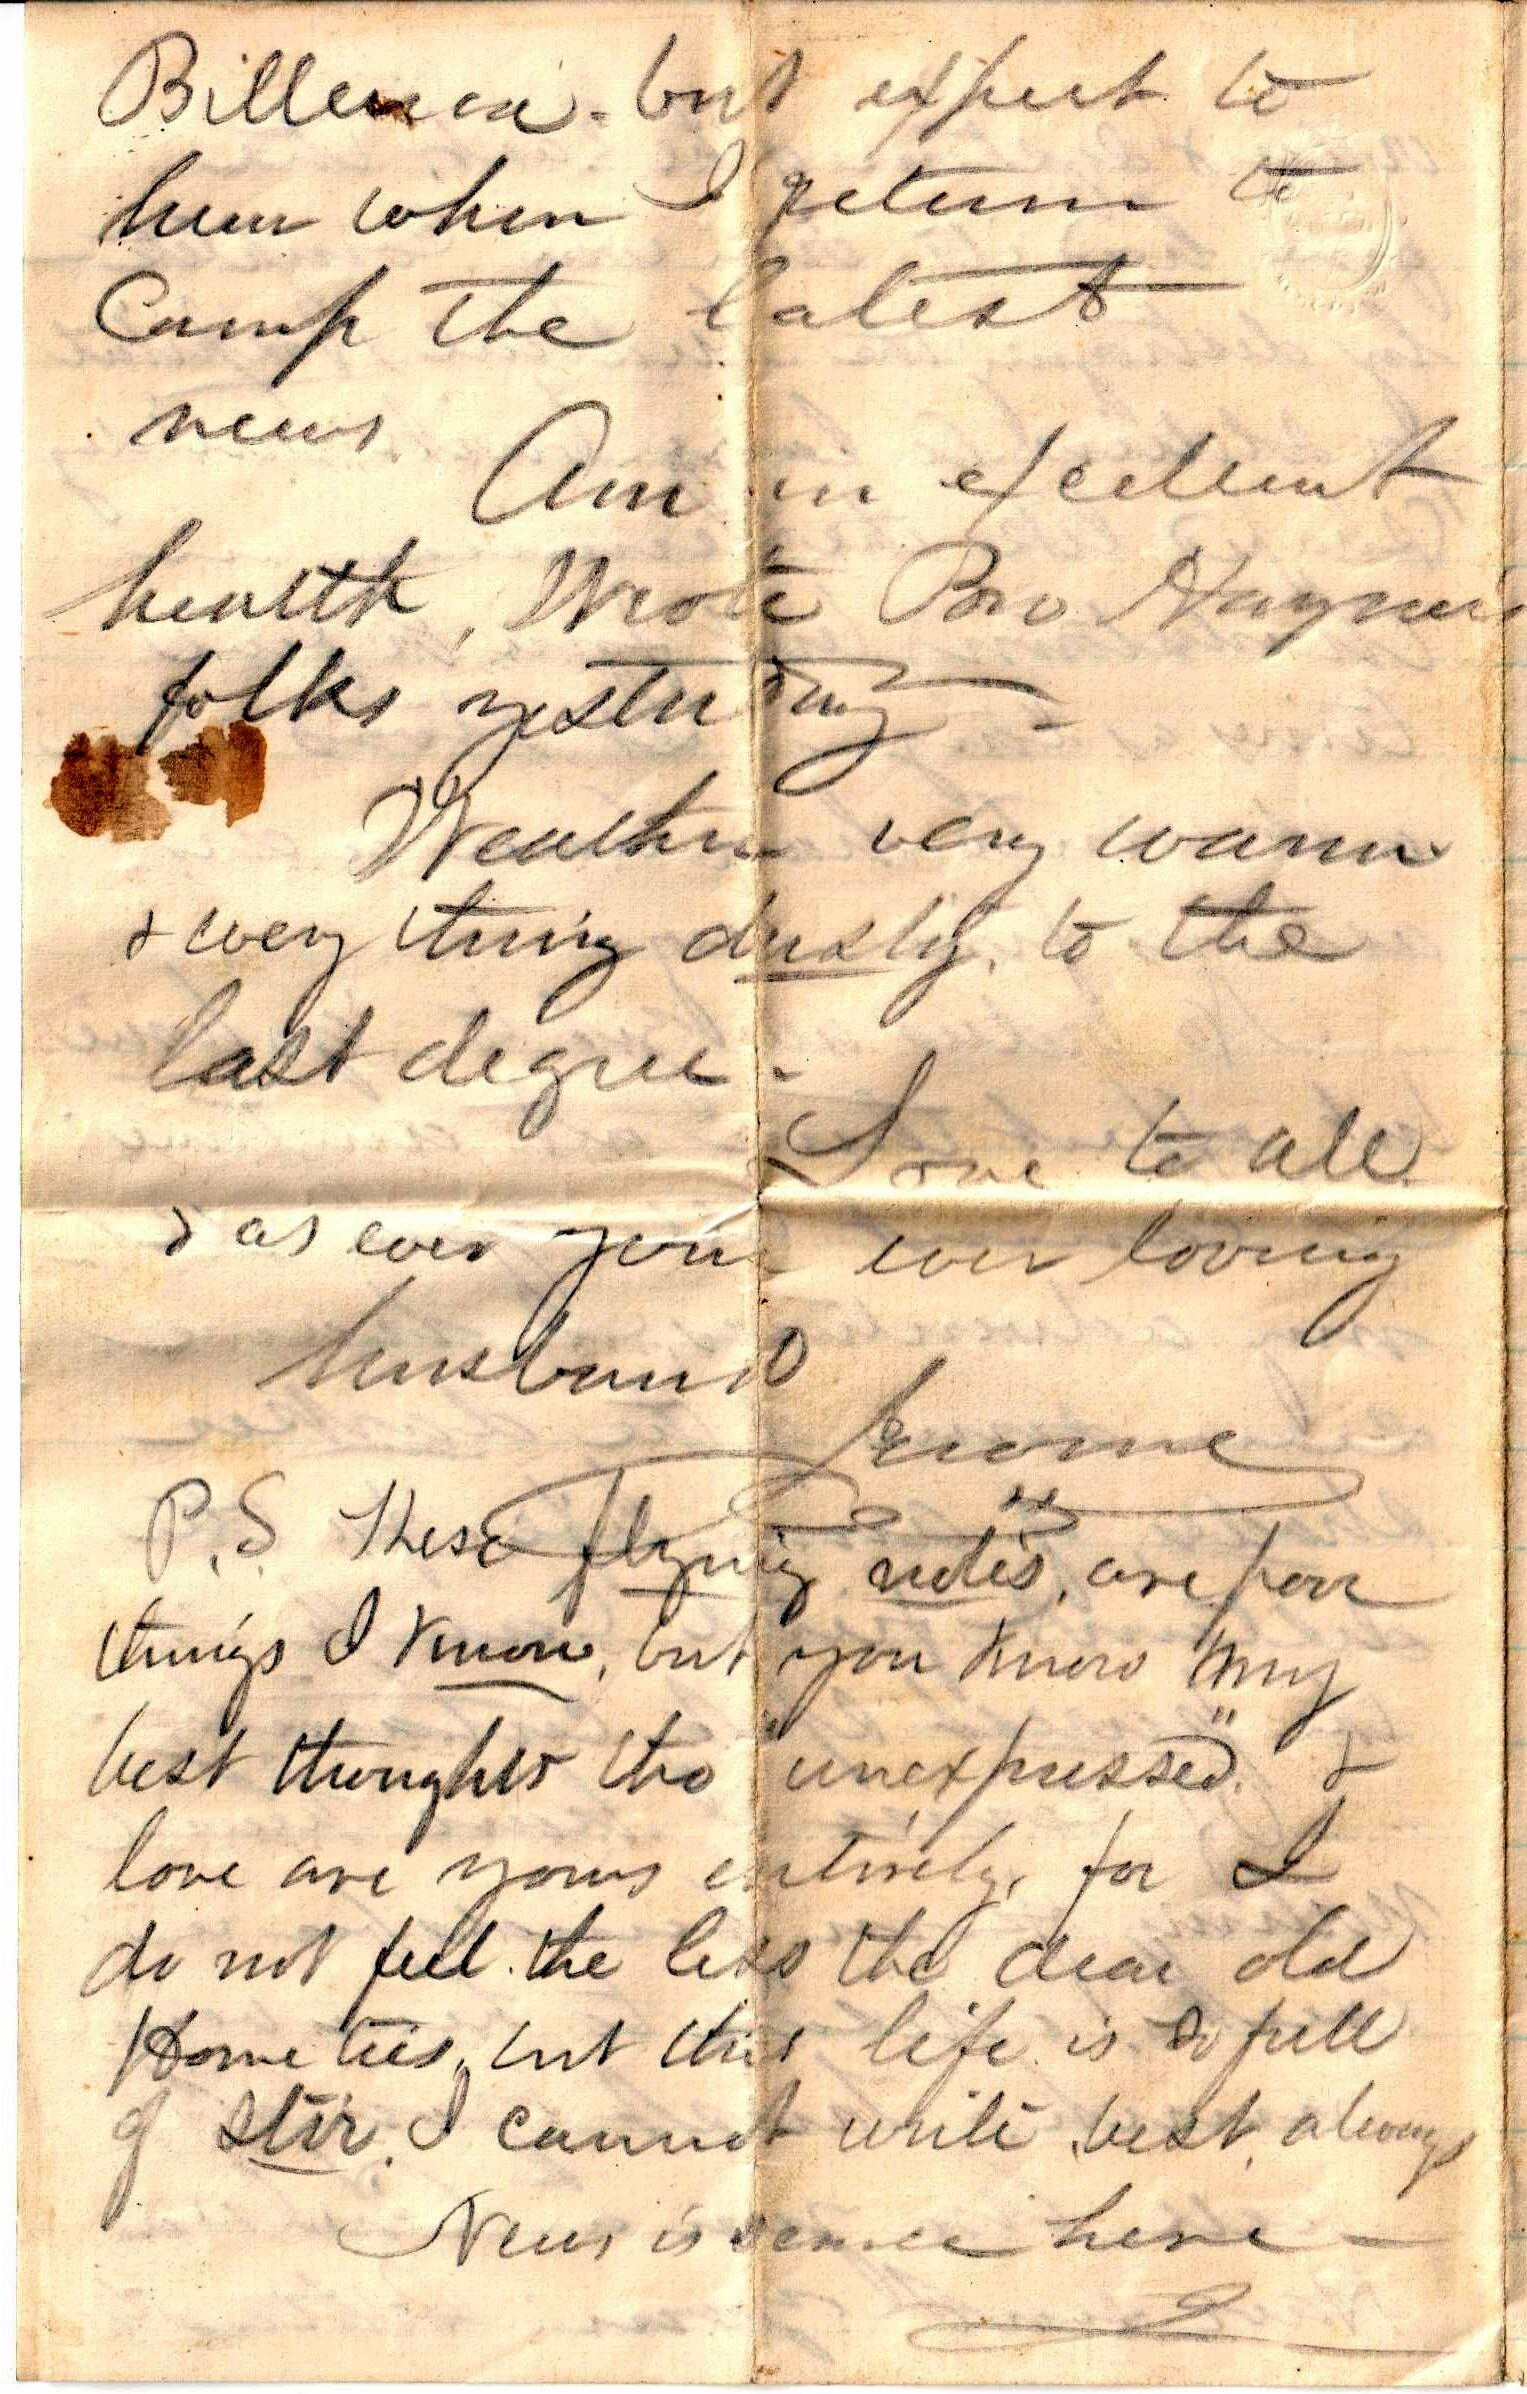 Billerica - but expect to
hear when I return to
Camp the latest
news
Am in excellent
health, Wrote Bro Hayner
folks yesterday -
Weather very warm
& every thing dusty, to the
last degree -
Love to all
& as ever your ever loving
husband
Jerome
P.S. These flying notes, are poor
things I know, but you know my
best thoughts tho "unexpressed" &
love are yours entirely, for I
do not feel the less the dear old
Home ties, but this life is so full
of stir, I cannot write best, always
News is scarce here -